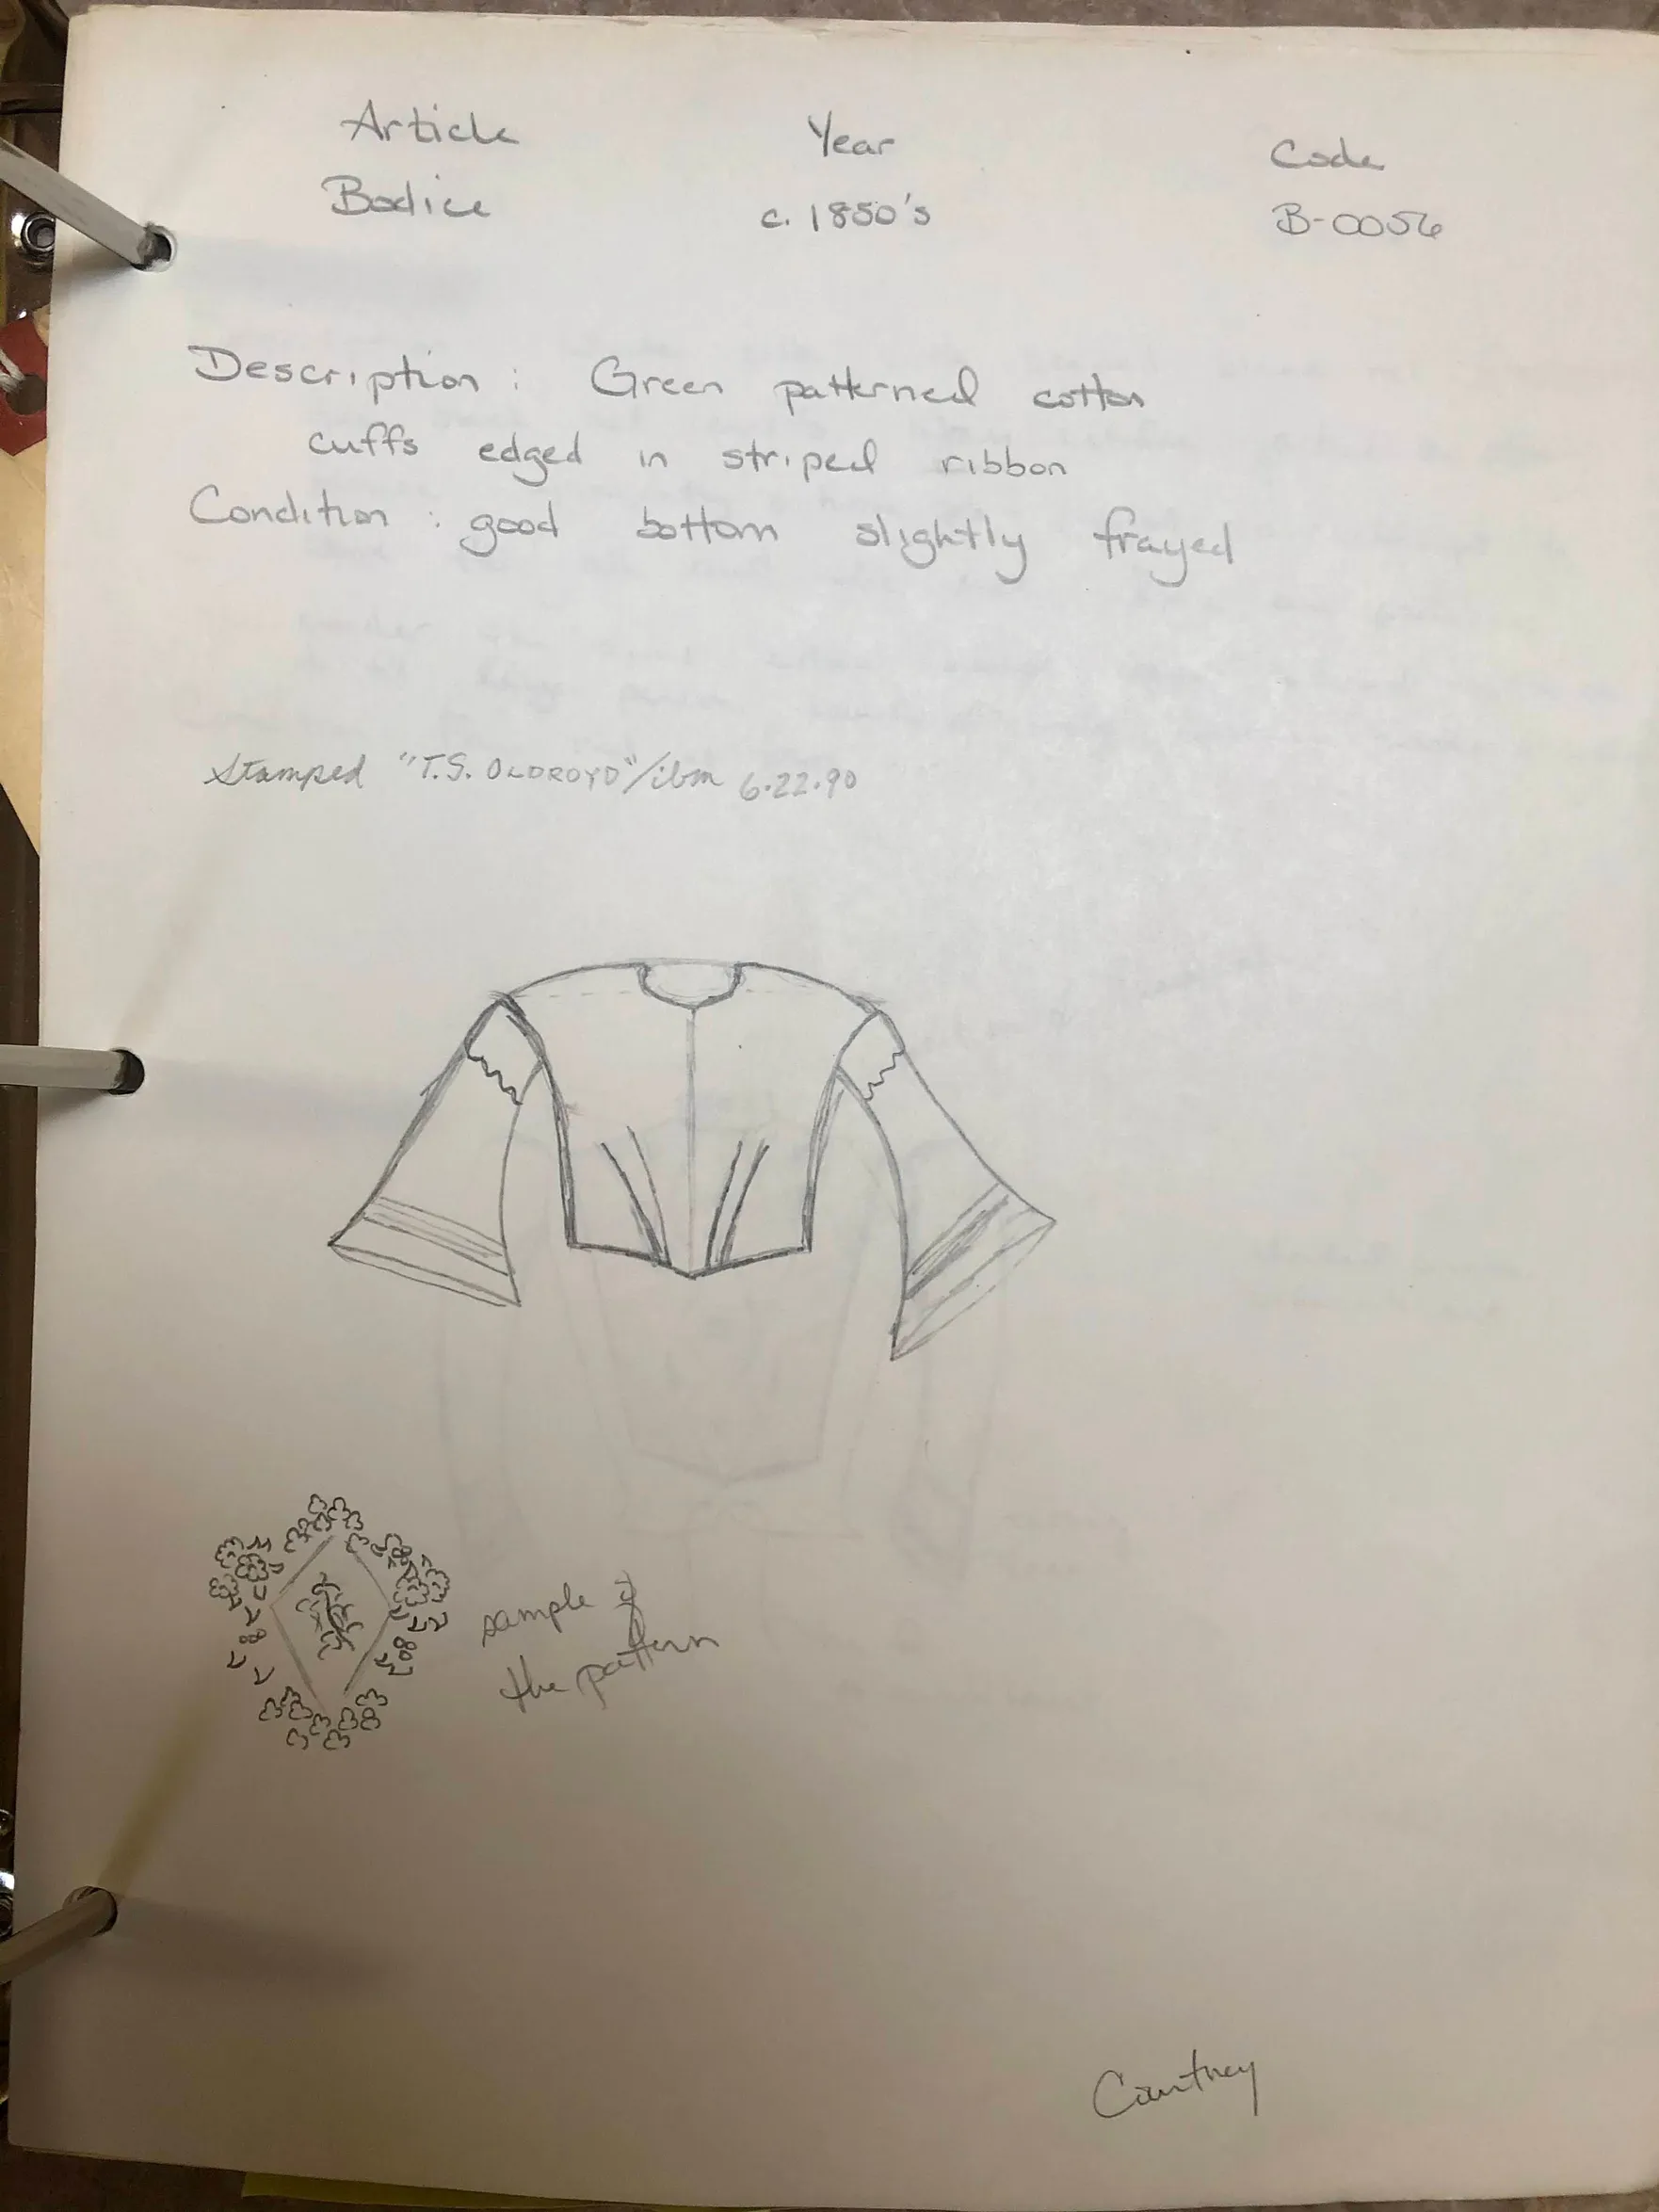 Article Year Code
Bodice c. 1850's B-0056
Description : Green patterned cotton
cuffs edged in striped ribbon
Condition : good bottom slightly frayed
Stamped "T.S. OLDROYD"/ibm 6.22.90
sample of
the pattern
Courtney